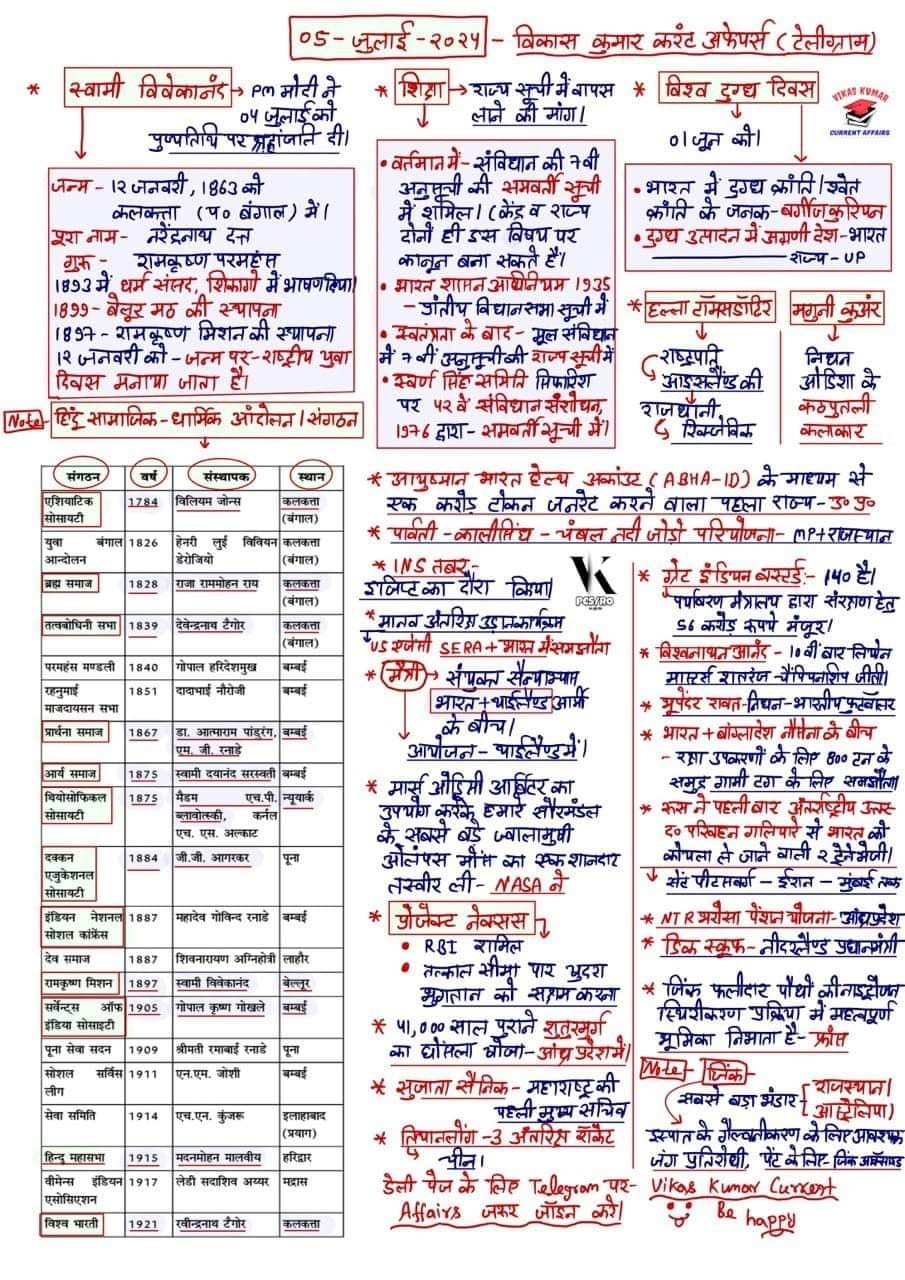 05-जुलाई-2024 - विकास कुमार करंट अफेयर्स (टेलीग्राम)
* स्वामी विवेकानंद → PM मोदी ने
04 जुलाई को
पुण्यतिथि पर श्रद्धांजति दी।
जन्म - 12 जनवरी, 1863 को
कलकत्ता (प० बंगाल) में।
पूरा नाम - नरेंद्रनाथ दत्त
गुरू - रामकृष्ण परमहंस
1893 में धर्म संसद, शिकागो में भाषण दिया।
1899 - बेलूर मठ की स्थापना
1897 - रामकृष्ण मिशन की स्थापना
12 जनवरी को - जन्म पर - राष्ट्रीय युवा
दिवस मनाया जाता है।
* शिक्षा → राज्य सूची में वापस
लाने की मांग।
• वर्तमान में - संविधान की 7 वीं
अनुसूची की समवर्ती सूची
में शामिल। (केंद्र व राज्य
दोनों ही इस विषय पर
कानून बना सकते हैं।
• भारत शासन अधिनियम 1935
- प्रांतीय विधानसभा सूची में
• स्वतंत्रता के बाद - मूल संविधान
में 7 वीं अनुसूची की राज्य सूची में
• स्वर्ण सिंह समिति सिफारिश
पर 42 वें संविधान संशोधन,
1976 द्वारा - समवर्ती सूची में।
* विश्व दुग्ध दिवस
01 जून को।
VIKAS KUMAR
CURRENT AFFAIRS
• भारत में दुग्ध क्रांति/श्वेत
क्रांति के जनक - वर्गीज कुरियन
• दुग्ध उत्पादन में अग्रणी देश - भारत
राज्य - UP
* हल्ला टॉमसडॉटिर
राष्ट्रपति
आइसलैंड की
राजधानी
रिक्जेविक
मगुनी कुअंर
निधन
ओडिशा के
कठपुतली
कलाकार
Note - हिंदू सामाजिक-धार्मिक आंदोलन/संगठन
संगठन वर्ष संस्थापक स्थान
एशियाटिक सोसायटी 1784 विलियम जोन्स कलकत्ता (बंगाल)
युवा बंगाल आन्दोलन 1826 हेनरी लुई विवियन डेरोजियो कलकत्ता (बंगाल)
ब्रह्म समाज 1828 राजा राममोहन राय कलकत्ता (बंगाल)
तत्वबोधिनी सभा 1839 देवेन्द्रनाथ टैगोर कलकत्ता (बंगाल)
परमहंस मण्डली 1840 गोपाल हरिदेशमुख बम्बई
रहनुमाई माजदायसन सभा 1851 दादाभाई नौरोजी बम्बई
प्रार्थना समाज 1867 डा. आत्माराम पांडुरंग, एम. जी. रनाडे बम्बई
आर्य समाज 1875 स्वामी दयानंद सरस्वती बम्बई
थियोसोफिकल सोसायटी 1875 मैडम एच.पी. ब्लावोत्स्की, कर्नल एच. एस. अल्काट न्यूयार्क
दक्कन एजुकेशनल सोसायटी 1884 जी.जी. आगरकर पूना
इंडियन नेशनल सोशल कांफ्रेंस 1887 महादेव गोविन्द रनाडे बम्बई
देव समाज 1887 शिवनारायण अग्निहोत्री लाहौर
रामकृष्ण मिशन 1897 स्वामी विवेकानंद बेल्लूर
सर्वेन्ट्स ऑफ इंडिया सोसाइटी 1905 गोपाल कृष्ण गोखले बम्बई
पूना सेवा सदन 1909 श्रीमती रमाबाई रनाडे पूना
सोशल सर्विस लीग 1911 एन.एम. जोशी बम्बई
सेवा समिति 1914 एच.एन. कुंजरू इलाहाबाद (प्रयाग)
हिन्दू महासभा 1915 मदनमोहन मालवीय हरिद्वार
वीमेन्स इंडियन एसोसिएशन 1917 लेडी सदाशिव अय्यर मद्रास
विश्व भारती 1921 रवीन्द्रनाथ टैगोर कलकत्ता
* आयुष्मान भारत हेल्थ अकाउंट (ABHA-ID) के माध्यम से
एक करोड़ टोकन जनरेट करने वाला पहला राज्य - उ० प्र०
* पार्वती - कालीसिंध - चंबल नदी जोड़ो परियोजना - MP+राजस्थान
* INS तबर -
इजिप्ट का दौरा किया।
PCS/RO
* मानव अंतरिक्ष उड़ान कार्यक्रम
US एजेंसी SERA + भारत में समझौता
* मैत्री → संयुक्त सैन्याभ्यास
भारत+थाईलैण्ड आर्मी
के बीच।
आयोजन - थाईलैण्ड में।
* मार्स ओडिसी आर्बिटर का
उपयोग करके हमारे सौरमंडल
के सबसे बड़े ज्वालामुखी
ओलंपस मॉन्स का एक शानदार
तस्वीर ली - NASA ने
* प्रोजेक्ट नेक्सस
• RBI शामिल
• तत्काल सीमा पार खुदरा
भुगतान को सक्षम करना
* 41,000 साल पुराने शुतुरमुर्ग
का घोंसला खोजा - आंध्र प्रदेश में।
* सुजाता सौनिक - महाराष्ट्र की
पहली मुख्य सचिव
* तियानलोंग - 3 अंतरिक्ष रॉकेट
चीन।
डेली पेज के लिए Telegram पर-
Affairs जकर जॉइन करें।
* ग्रेट इंडियन बस्टर्ड:- 140 हैं।
पर्यावरण मंत्रालय द्वारा संरक्षण हेतु
56 करोड़ रूपये मंजूर।
* विश्वनाथन आनंद - 10 वीं बार लियोन
मास्टर्स शतरंज चैंपियनशिप जीती।
* भूपिंदर रावत - निधन - भारतीय फुटबॉलर
* भारत + बांग्लादेश नौसेना के बीच
- रक्षा उपकरणों के लिए 800 टन के
समुद्र गामी टग के लिए समझौता।
* रूस ने पहली बार अंतर्राष्ट्रीय उत्तर
द० परिवहन गलियारे से भारत को
कोयला ले जाने वाली 2 ट्रेनें भेजी।
सेंट पीटर्सबर्ग - ईरान - मुंबई तक
* NTR भरोसा पेंशन योजना - आंध्रप्रदेश
* डिक स्कूफ - नीदरलैण्ड प्रधानमंत्री
* जिंक फलीदार पौधों की नाइट्रोजन
स्थिरीकरण प्रक्रिया में महत्वपूर्ण
भूमिका निभाता है - फ्रांस
Note - जिंक
सबसे बड़ा भंडार - राजस्थान।
आस्ट्रेलिया।
इस्पात के गैल्वनीकरण के लिए आवश्यक
जंग प्रतिरोधी, पेंट के लिए - जिंक ऑक्साइड
Vikas Kumar Current
Be happy